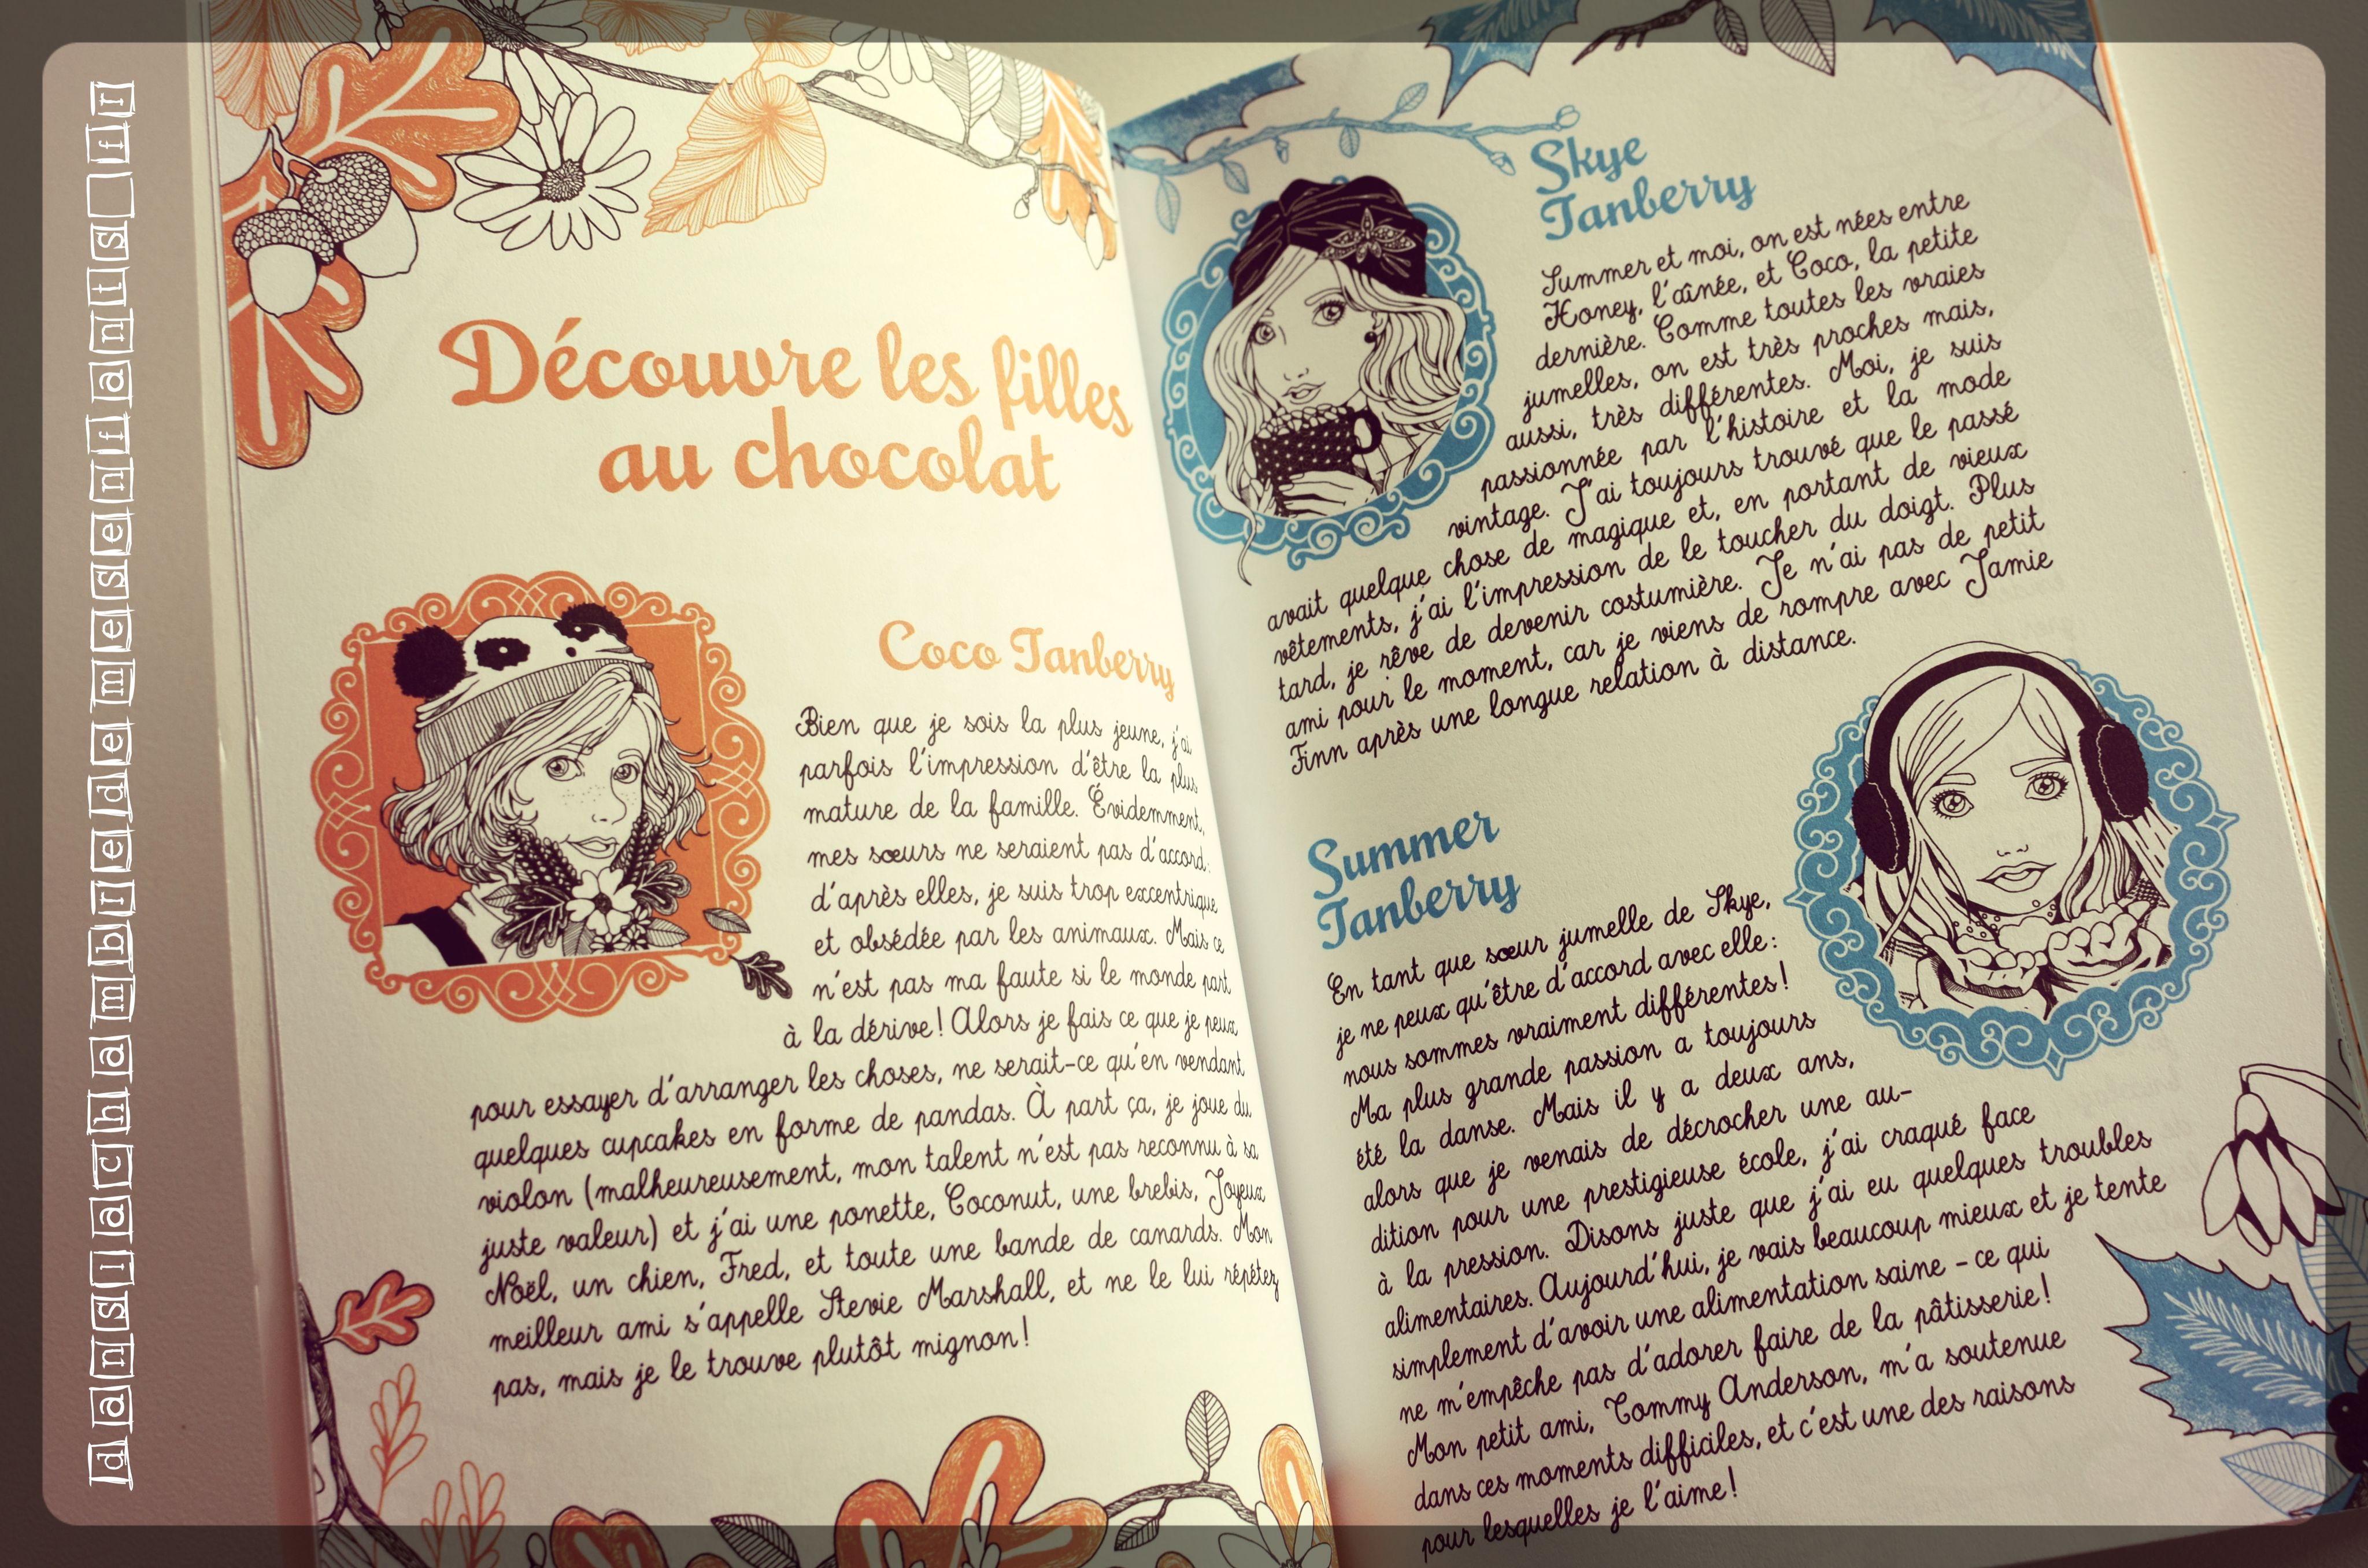 danslachambredemesenfants_fr
Découvre les filles
au chocolat
Coco Tanberry
Bien que je sois la plus jeune, j'ai
parfois l'impression d'être la plus
mature de la famille. Évidemment,
mes sœurs ne seraient pas d'accord:
d'après elles, je suis trop excentrique
et obsédée par les animaux. Mais ce
n'est pas ma faute si le monde part
à la dérive! Alors je fais ce que je peux
pour essayer d'arranger les choses, ne serait-ce qu'en vendant
quelques cupcakes en forme de pandas. À part ça, je joue du
violon (malheureusement, mon talent n'est pas reconnu à sa
juste valeur) et j'ai une ponette, Coconut, une brebis, Joyeux
Noël, un chien, Fred, et toute une bande de canards. Mon
meilleur ami s'appelle Stevie Marshall, et ne le lui répétez
pas, mais je le trouve plutôt mignon!
Skye
Tanberry
Summer et moi, on est nées entre
Honey, l'aînée, et Coco, la petite
dernière. Comme toutes les vraies
jumelles, on est très proches mais,
aussi, très différentes. Moi, je suis
passionnée par l'histoire et la mode
vintage. J'ai toujours trouvé que le passé
avait quelque chose de magique et, en portant de vieux
vêtements, j'ai l'impression de le toucher du doigt. Plus
tard, je rêve de devenir costumière. Je n'ai pas de petit
ami pour le moment, car je viens de rompre avec Jamie
Finn après une longue relation à distance.
Summer
Tanberry
En tant que sœur jumelle de Skye,
je ne peux qu'être d'accord avec elle:
nous sommes vraiment différentes!
Ma plus grande passion a toujours
été la danse. Mais il y a deux ans,
alors que je venais de décrocher une au-
dition pour une prestigieuse école, j'ai craqué face
à la pression. Disons juste que j'ai eu quelques troubles
alimentaires. Aujourd'hui, je vais beaucoup mieux et je tente
simplement d'avoir une alimentation saine - ce qui
ne m'empêche pas d'adorer faire de la pâtisserie!
Mon petit ami, Tommy Anderson, m'a soutenue
dans ces moments difficiles, et c'est une des raisons
pour lesquelles je l'aime!